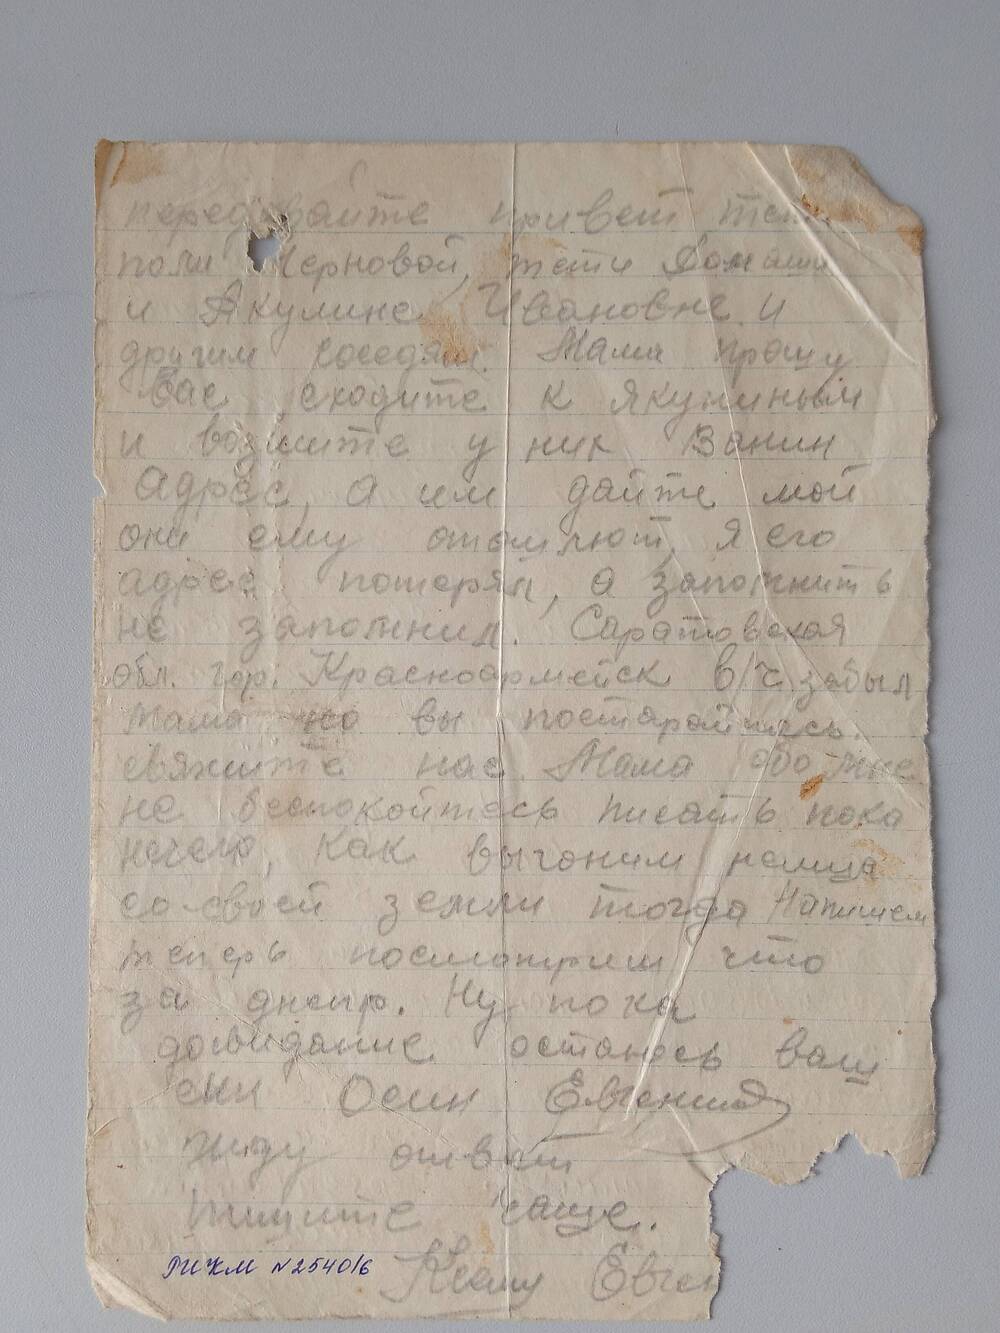 передавайте привет тети
поли Черновой, тети Домаши
и Якулине Ивановне и
другим соседям. Мама прошу
вас сходите к Якуниным
и возмите у них Ванин
адрес, а им дайте мой
они ему отошлют, я его
адрес потерял, а запомнить
не запомнил. Саратовская
обл. гор. Красноармейск в/ч забыл
мама но вы постарайтесь.
свяжите нас. Мама обо мне
не беспокойтесь писать пока
нечего, как выгоним немца
со своей земли тогда напишем
теперь посмотрим что
за днепр. Ну пока
досвидание остаюсь ваш
сын Осин Евгений
жду ответ
пишите чаще.
Евген
РИКМ №2540/6